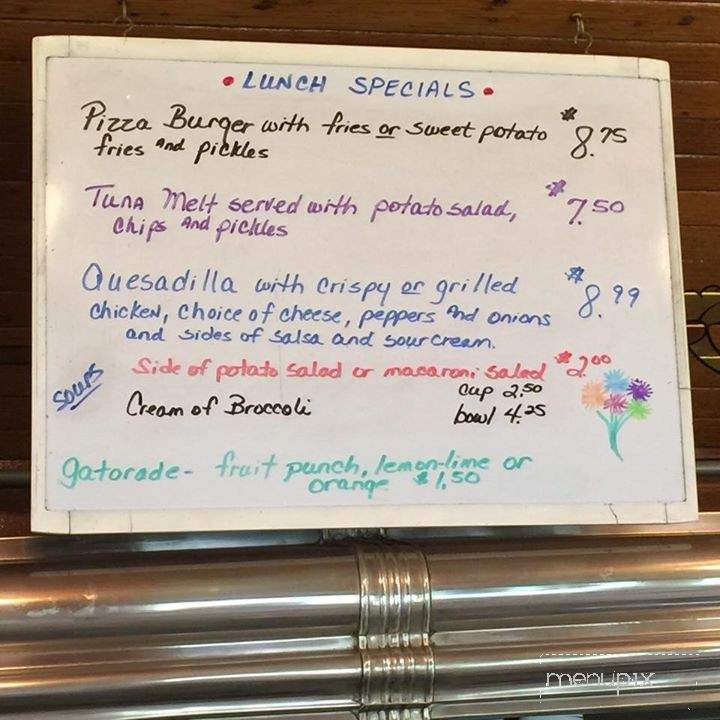 • LUNCH SPECIALS •
Pizza Burger with fries or sweet potato $8.75
fries and pickles
Tuna Melt served with potato salad, $7.50
chips and pickles
Quesadilla with crispy or grilled $8.99
chicken, choice of cheese, peppers and onions
and sides of salsa and sour cream.
Side of potato salad or macaroni salad $2.00
soups
Cream of Broccoli cup 2.50
bowl 4.25
gatorade - fruit punch, lemon-lime or
orange $1.50
menupix